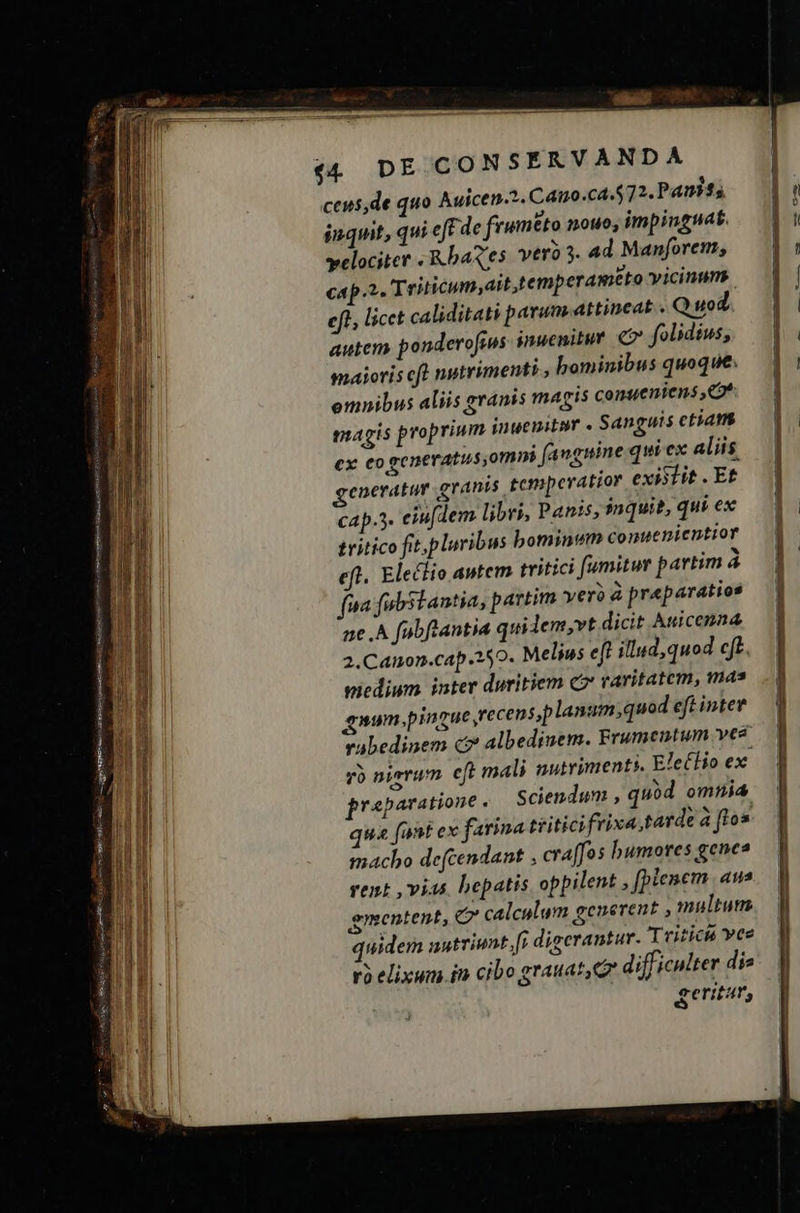 54 DE CONSERVANDA
ceus,de quo Auicen.2. Cano.ca.572. Panis,
inquit, qui eſt de frumẽto nouo, impinguat
velociter . Rhazes verò 3. ad Manſorem,
cap.2. Triticum,ait,temperamẽto vicinum
eſt, licet caliditati parum attineat . Quod
autem ponderoſius inuenitur & ſolidius,
maioris eſt nutrimenti , hominibus quoque
omnibus aliis granis magis conueniens,&
magis proprium inuenitur . Sanguis etiam
ex eo generatus,omni ſanguine qui ex aliis
generatur granis temperatior existit . Et
cap.3. eiuſdem libri, Panis, inquit, qui ex
tritico fit,pluribus hominum conuenientior
eſt. Electio autem tritici ſumitur partim à
ſua ſubstantia, partim verò à præparatio=
ne .A ſubſtantia quidem,vt dicit Auicenna
2.Canon.cap.250. Melius eſt illud,quod eſt
medium inter duritiem & raritatem, ma=
gnum,pingue,recens,planum,quod eſt inter
rubedinem & albedinem. Frumentum ve=
rò nigrum eſt mali nutrimenti. Electio ex
præparatione . Sciendum , quòd omnia
quæ ſunt ex farina tritici frixa,tarde à ſto=
macho deſcendant , craſſos humores gene=
rent , vias hepatis oppilent , ſplenem au=
gmentent, & calculum generent , multum
quidem nutriunt,ſi digerantur. Triticũ ve=
rò elixum in cibo grauat,& difficulter di=
geritur,